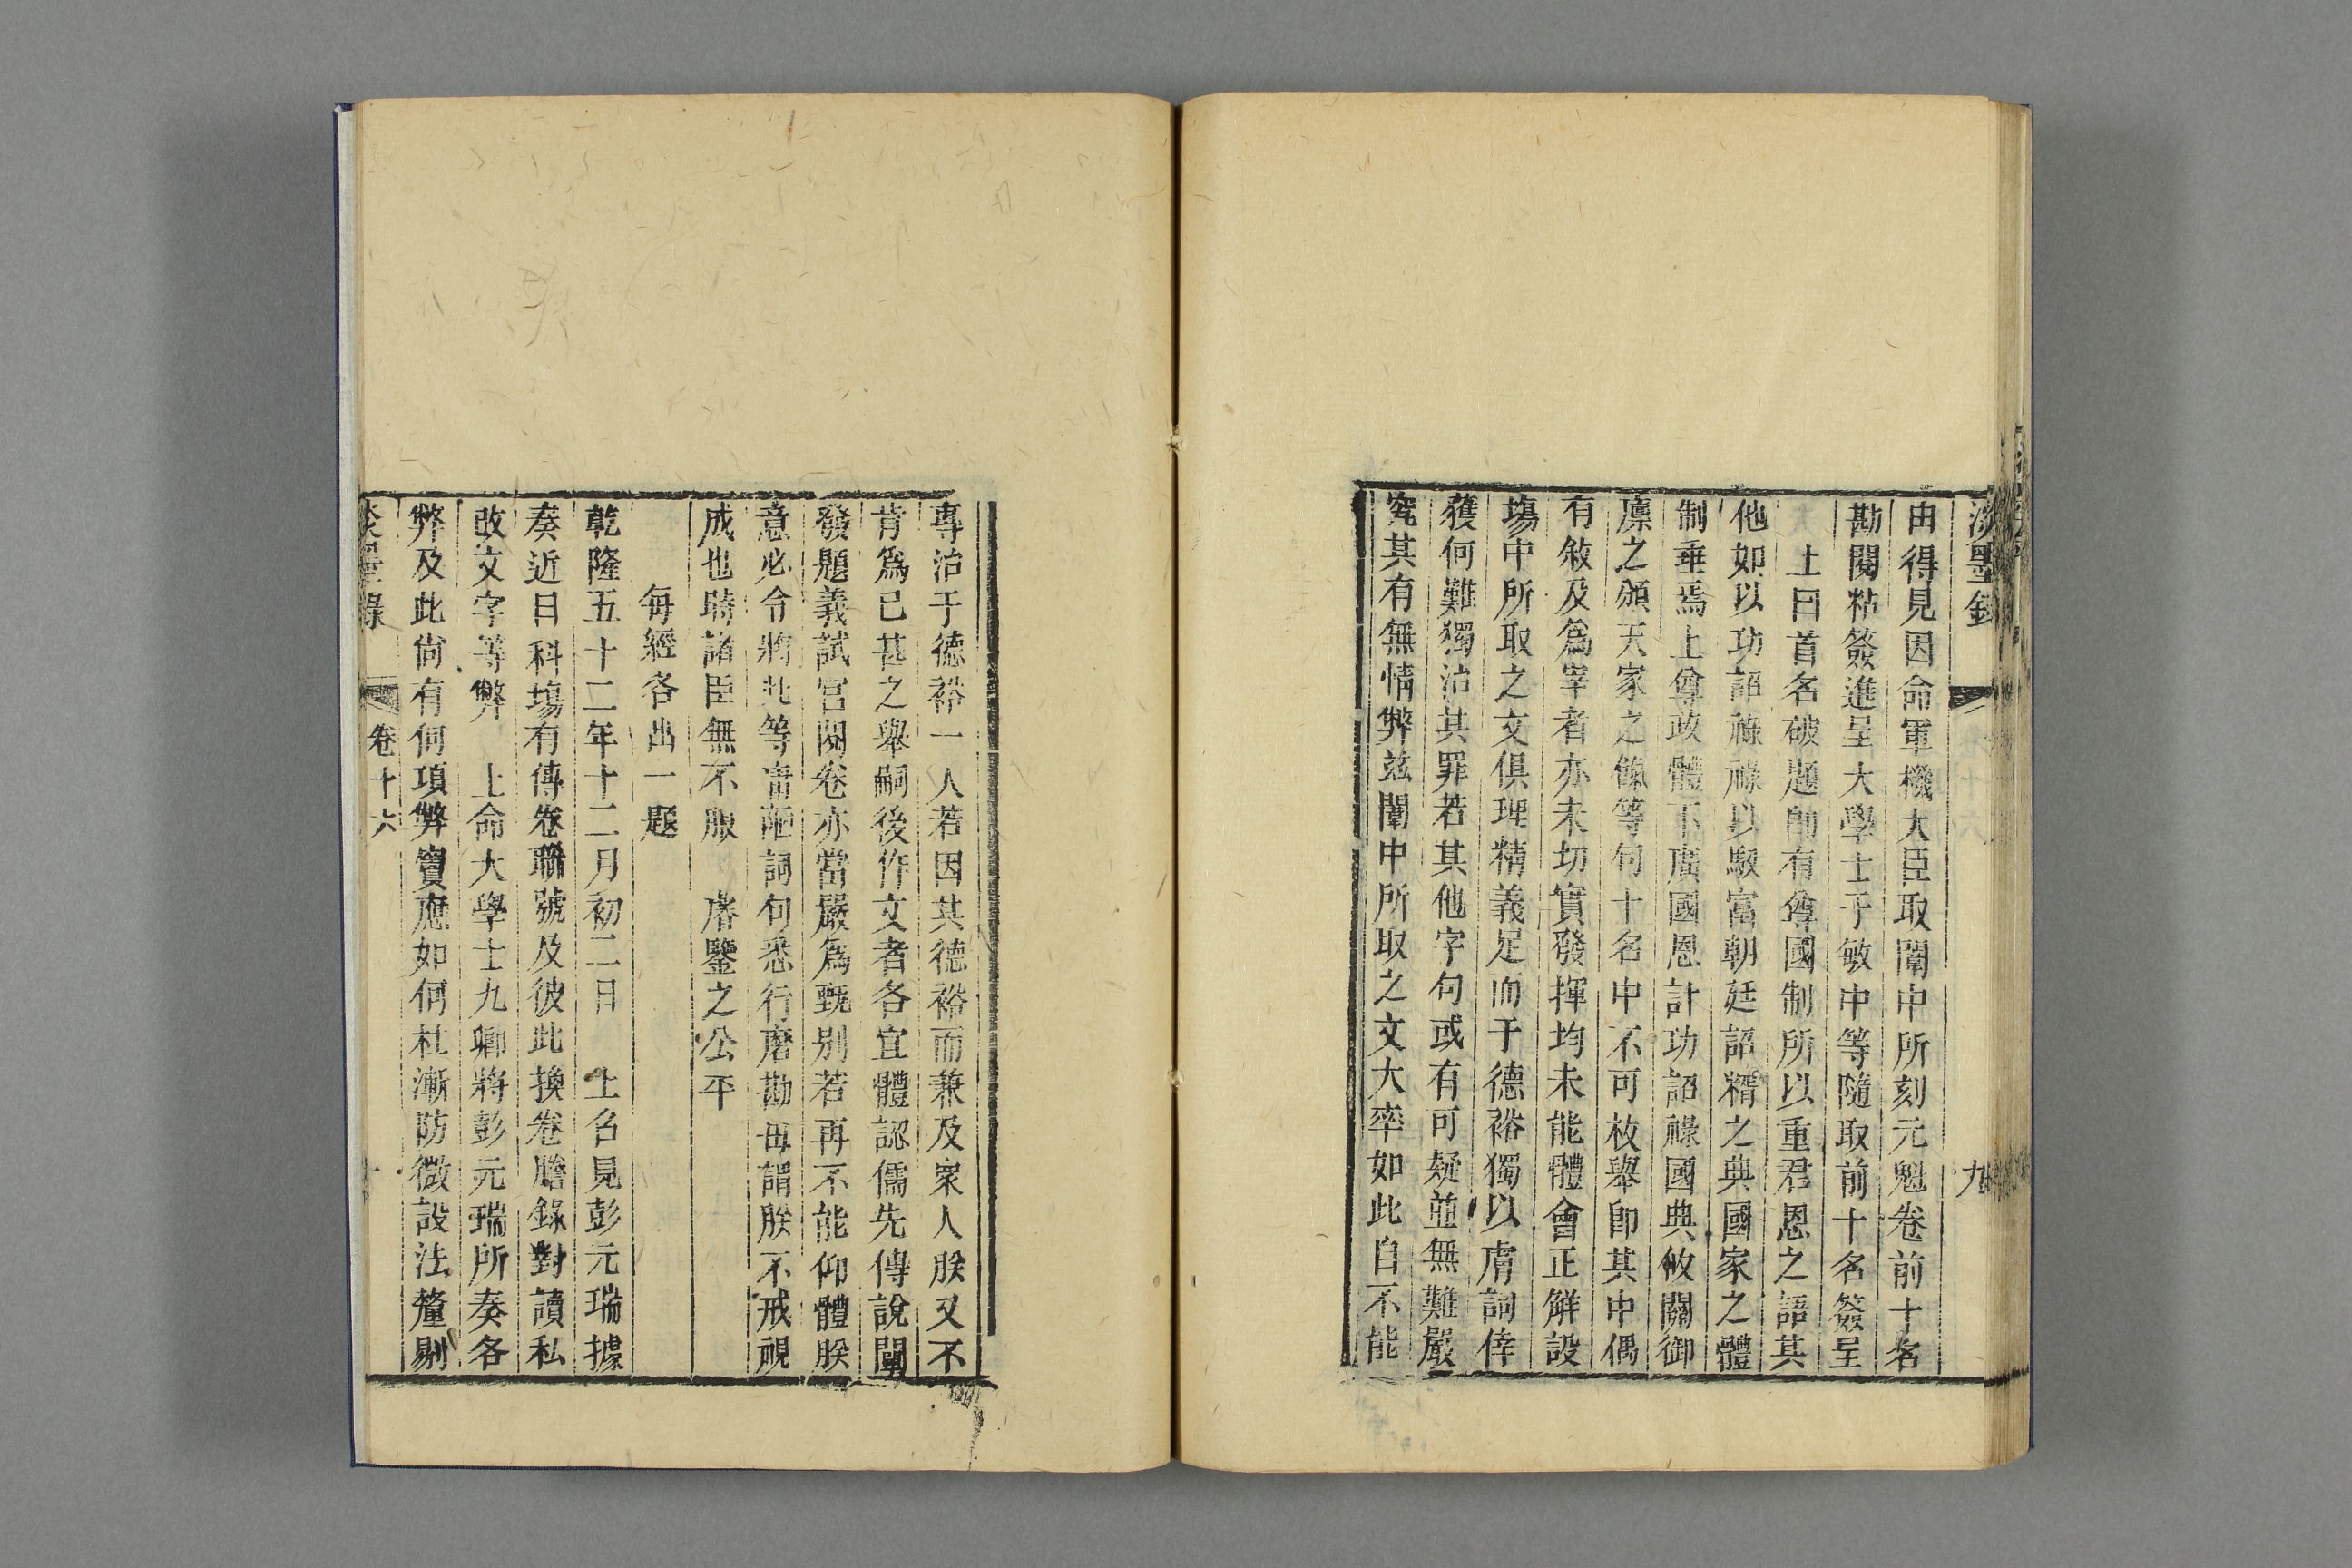 淡墨錄 九
由得見因命軍機大臣取闈中所刻元魁卷前十名
勘閱粘簽進呈大學士于敏中等隨取前十名簽呈
上曰首名破題卽有尊國制所以重君恩之語其
他如以功詔祿祿以馭富朝廷詔糈之典國家之體
制垂焉上尊政體下廣國恩計功詔祿國典攸關御
廩之頒天家之餼等句十名中不可枚舉卽其中偶
有敘及爲宰者亦未切實發揮均未能體會正解設
場中所取之文俱理精義足而于德裕獨以膚詞倖
獲何難獨治其罪若其他字句或有可疑並無難嚴
究其有無情弊玆闈中所取之文大率如此自不能
專治于德裕一人若因其德裕而兼及衆人朕又不
肯爲已甚之舉嗣後作文者各宜體認儒先傳說闈
發題義試官閱卷亦當嚴爲甄别若再不能仰體朕
意必令將此等庸陋詞句悉行磨勘毋謂朕不戒視
成也時諸臣無不服 睿鑒之公平
每經各出一題
乾隆五十二年十二月初二日 上召見彭元瑞據
奏近日科塲有傳卷聯號及彼此換卷謄錄對讀私
改文字等弊 上命大學士九卿將彭元瑞所奏各
弊及此尙有何項弊竇應如何杜漸防微設法釐剔
淡墨錄 卷十六 十